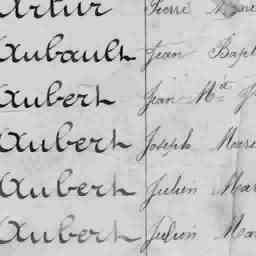 Artur Pierre Marie
Aubault Jean Bapt
Aubert Jean Mie J
Aubert Joseph Marie
Aubert Julien Mar
Aubert Julien Ma